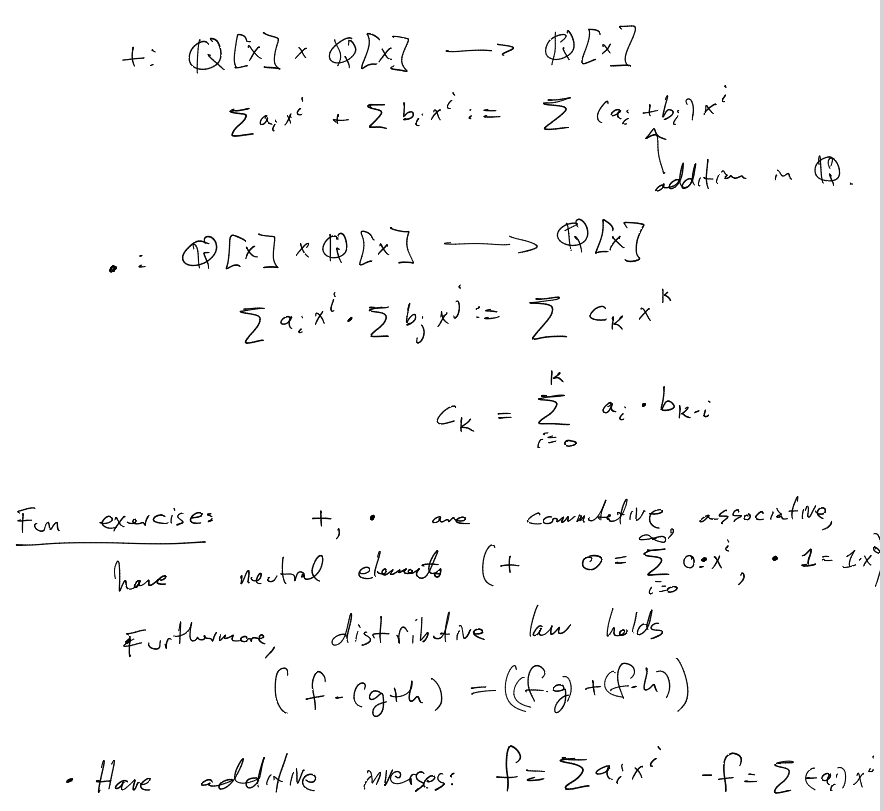 +: ℚ[x] × ℚ[x] → ℚ[x]
∑ aᵢxⁱ + ∑ bᵢxⁱ := ∑ (aᵢ + bᵢ)xⁱ
addition in ℚ.
• : ℚ[x] × ℚ[x] → ℚ[x]
∑ aᵢxⁱ · ∑ bⱼxʲ := ∑ c_K x^K
c_K = ∑_{i=0}^{K} aᵢ · b_{K-i}
Fun exercises +, • are commutative, associative,
have neutral elements (+ 0 = ∑_{i=0}^{∞} 0·xⁱ, • 1 = 1·x⁰)
Furthermore, distributive law holds
(f·(g+h) = ((f·g)+(f·h))
• Have additive inverses: f = ∑ aᵢxⁱ -f = ∑ (-aᵢ)xⁱ